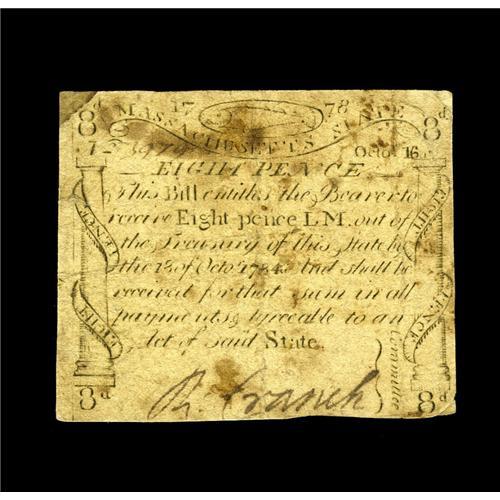 8d 17 78 8d
MASSACHUSETTS STATE
Octor. 16
EIGHT PENCE
This Bill entitles the Bearer to
receive Eight pence L.M. out of
the Treasury of this State by
the 18 of Octor. 1784 And shall be
received for that sum in all
payments Agreeable to an
Act of said State.
EIGHT PENCE
EIGHT PENCE
Committee
8d R. Cranch 8d